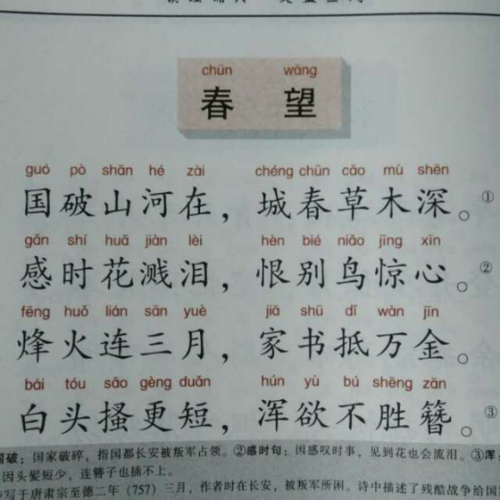 chūn wàng
春 望
guó pò shān hé zài chéng chūn cǎo mù shēn
国破山河在，城春草木深。①
gǎn shí huā jiàn lèi hèn bié niǎo jīng xīn
感时花溅泪，恨别鸟惊心。②
fēng huǒ lián sān yuè jiā shū dǐ wàn jīn
烽火连三月，家书抵万金。
bái tóu sāo gèng duǎn hún yù bú shēng zān
白头搔更短，浑欲不胜簪。③
破：国家破碎，指国都长安被叛军占领。②感时句：因感叹时事，见到花也会流泪。③浑：
因头发短少，连簪子也插不上。
写于唐肃宗至德二年（757）三月，作者时在长安，被叛军所困。诗中描述了残酷战争给国